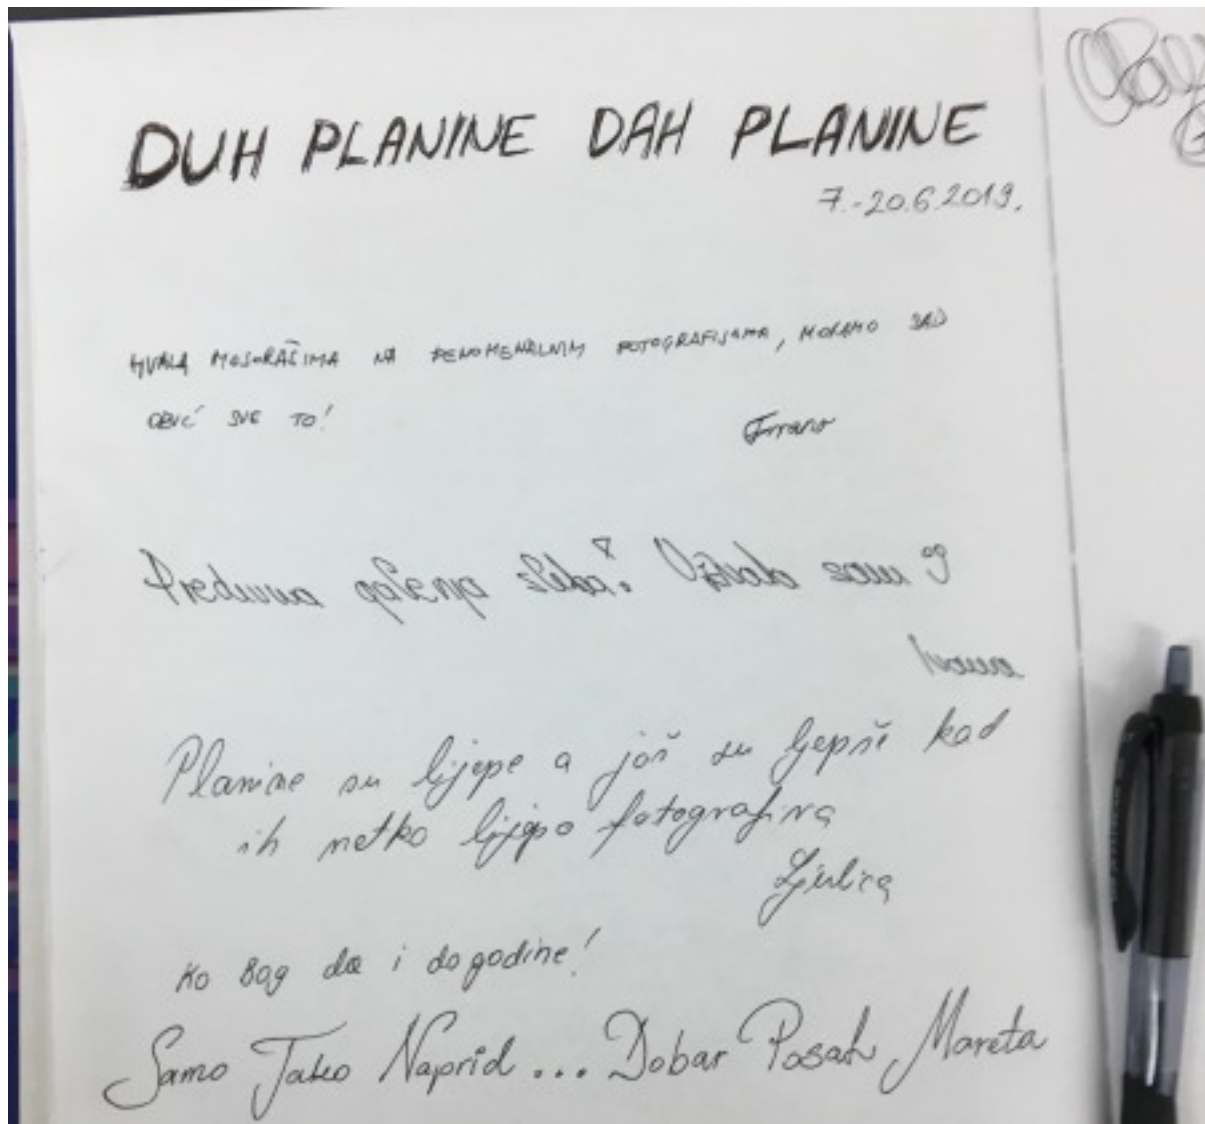 DUH PLANINE DAH PLANINE
7.-20.6.2019.
HVALA MOSORAŠIMA NA FENOMENALNIM FOTOGRAFIJAMA, MORAMO SAD
OBIĆ SVE TO!
Frano
Predivna galerija slika! Uživala sam
Ivana
Planine su lijepe a još su ljepše kad
ih netko lijepo fotografira
Ljulica
Ko Bog da i dogodine!
Samo Tako Naprid ... Dobar Posah Mareta